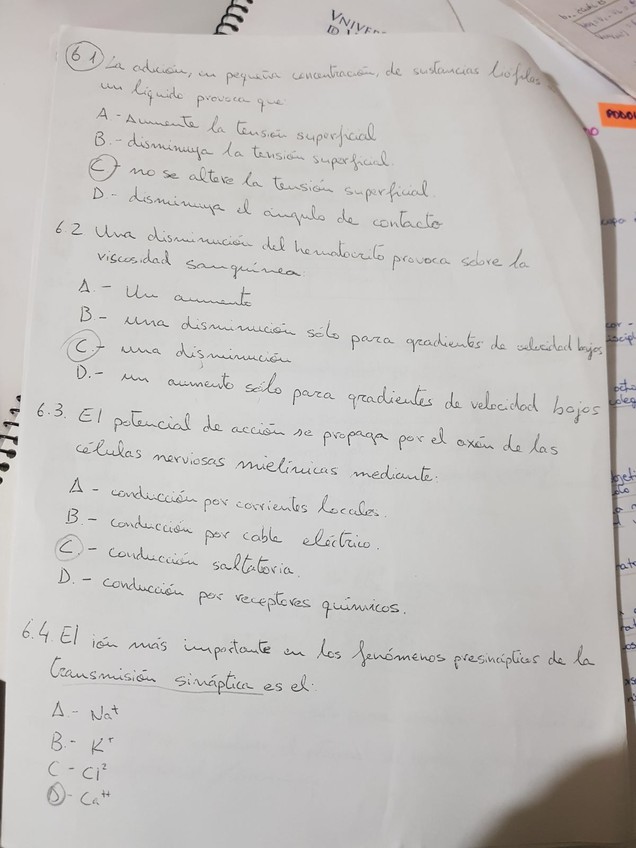 VNIVER
6.1 La adición, en pequeña concentración, de sustancias liófilas
un líquido provoca que
A - Aumente la tensión superficial
B - disminuya la tensión superficial.
C - no se altere la tensión superficial.
D - disminuya el ángulo de contacto
6.2 Una disminución del hematocrito provoca sobre la
viscosidad sanguínea
A. - Un aumento
B - una disminución sólo para gradientes de velocidad bajos
C - una disminución
D. - un aumento sólo para gradientes de velocidad bajos
6.3. El potencial de acción se propaga por el axón de las
células nerviosas mielínicas mediante:
A - conducción por corrientes locales.
B. - conducción por cable eléctrico.
C. - conducción saltatoria.
D. - conducción por receptores químicos.
6.4. El ión más importante en los fenómenos presinápticos de la
transmisión sináptica es el:
A - Na⁺
B. - K⁺
C - Cl²
D - Ca⁺⁺